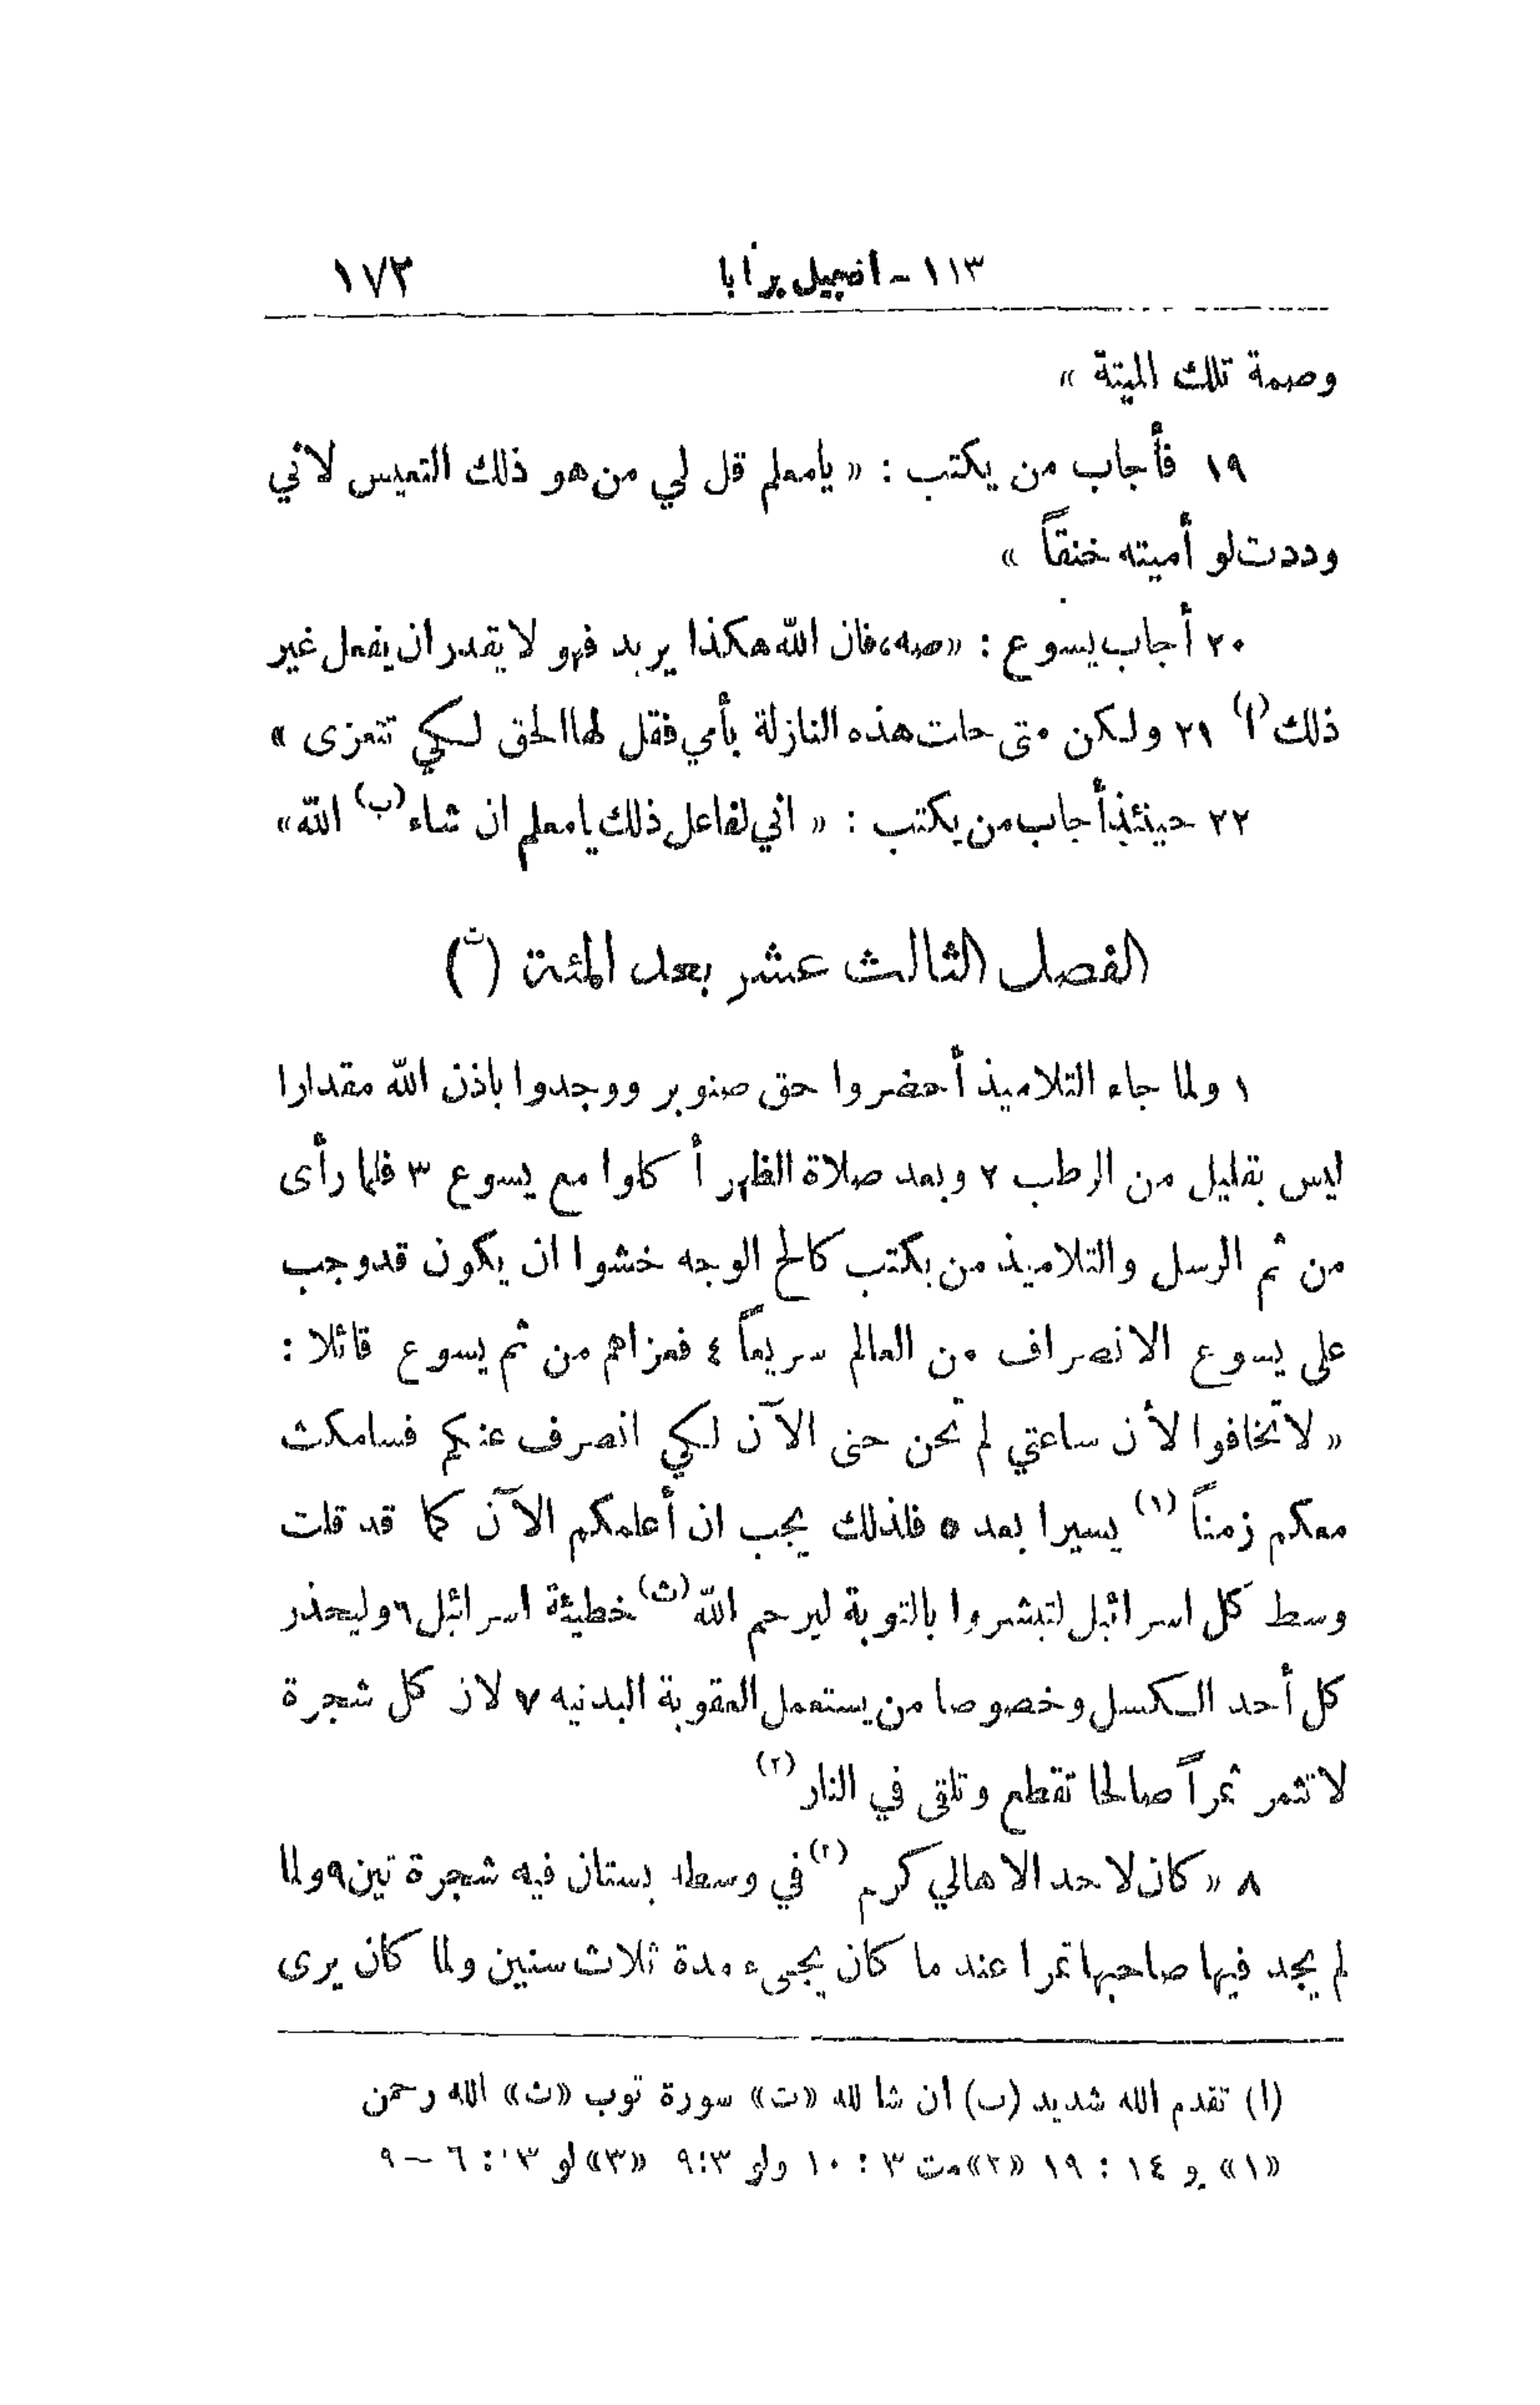 ١١٣ - انجيل برنابا ١٧٢
وصمة تلك الميتة »
١٩ فأجاب من يكتب : « يامعلم قل لي من هو ذلك التعيس لاني
وددت لو أميته خنقاً »
٢٠ أجاب يسوع : « صه ، فان الله هكذا يريد فهو لا يقدر ان يفعل غير
ذلك (ا) ٢١ ولكن متى حلت هذه النازلة بأمي فقل لها الحق لكي تتعزى »
٢٢ حينئذ أجاب من يكتب : « اني لفاعل ذلك يامعلم ان شاء (ب) الله »
الفصل الثالث عشر بعد المئة (ت)
١ ولما جاء التلاميذ أحضروا حق صنوبر ووجدوا باذن الله مقدارا
ليس بقليل من الرطب ٢ وبعد صلاة الظهر أكلوا مع يسوع ٣ فلما رأى
من ثم الرسل والتلاميذ من يكتب كالح الوجه خشوا ان يكون قد وجب
على يسوع الانصراف من العالم سريعاً ٤ فعزاهم من ثم يسوع قائلا :
« لا تخافوا لأن ساعتي لم تحن حتى الآن لكي انصرف عنكم فسامكث
معكم زمناً (١) يسيرا بعد ٥ فلذلك يجب ان أعلمكم الآن كما قد قلت
وسط كل اسرائيل لتبشروا بالتوبة ليرحم الله (ث) خطيئة اسرائيل ٦ وليحذر
كل أحد الكسل وخصوصا من يستعمل العقوبة البدنيه ٧ لان كل شجرة
لا تثمر ثمراً صالحا تقطع وتلقى في النار (٢)
٨ « كان لاحد الاهالي كرم (٢) في وسطه بستان فيه شجرة تين ٩ ولما
لم يجد فيها صاحبها ثمرا عند ما كان يجيء مدة ثلاث سنين ولما كان يرى
(ا) تقدم الله شديد (ب) ان شا لله «ت» سورة توب «ث» الله رحمن
«١» يو ١٤ : ١٩ «٢» مت ٣ : ١٠ ولو ٣:٩ «٣» لو ١٣ : ٦ – ٩